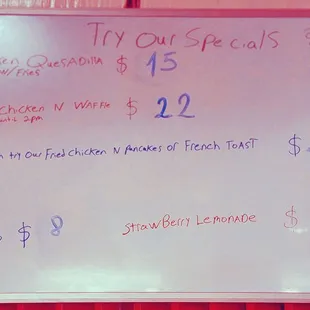 Try Our Specials
Quesadilla $ 15
w/Fries
Chicken N Waffle $ 22
until 2pm
try Our Fried chicken N Pancakes or French Toast $
$ 8 Strawberry Lemonade $